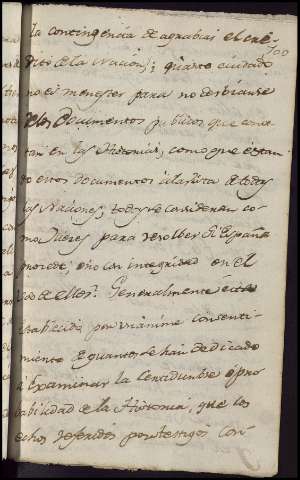 la contingencia de agrabiar el cre-
700
dito de la Nacion; quanto cuidado
no es menester para no desbiarse
de los Documentos publicos que cons
tan en las Historias, como que estan
do estos Documentos à la vista de todas
las Naciones; todas se consideran co-
mo Jueces para resolber si España
procede, ò no con integridad en el
uso de ellos. Generalmente está
establecido por unanime consenti-
miento de quantos se han dedicado
à Examinar la Certidumbre ò pro-
babilidad de la Historia, que los
echos referidos por testigos con-